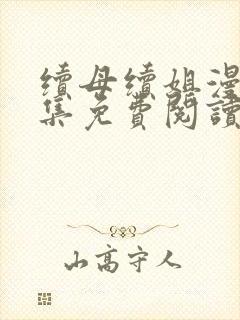 續母續姐漫
集免費閱讀
山高守人